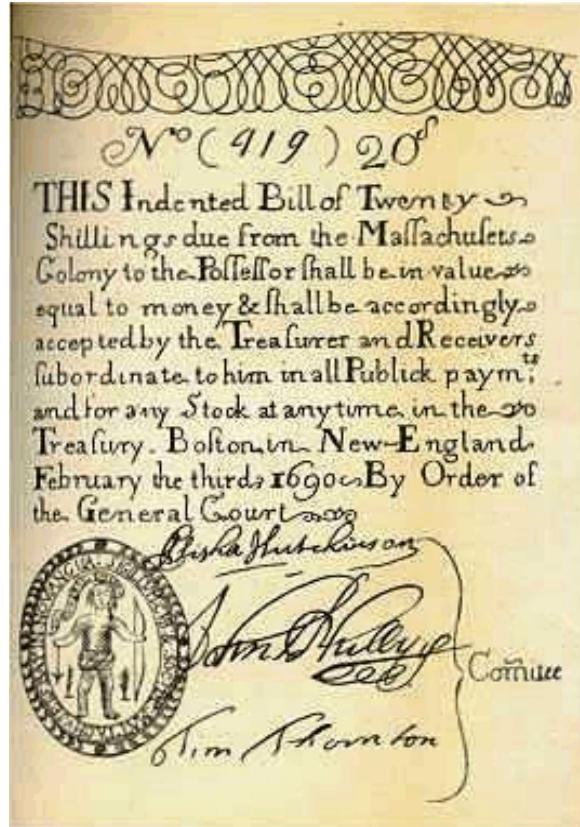 Nº (919) 20ˢ
THIS Indented Bill of Twenty
Shillings due from the Maſſachuſets
Colony to the Poſſeſſor ſhall be in value
equal to money & ſhall be accordingly
accepted by the Treaſurer and Receivers
ſubordinate to him in all Publick paymᵗˢ
and for any Stock at any time in the
Treaſury. Boſton in New-England
February the third 1690 By Order of
the General Court
Elisha Hutchinson
John
Comᵐittee
Tim Thornton